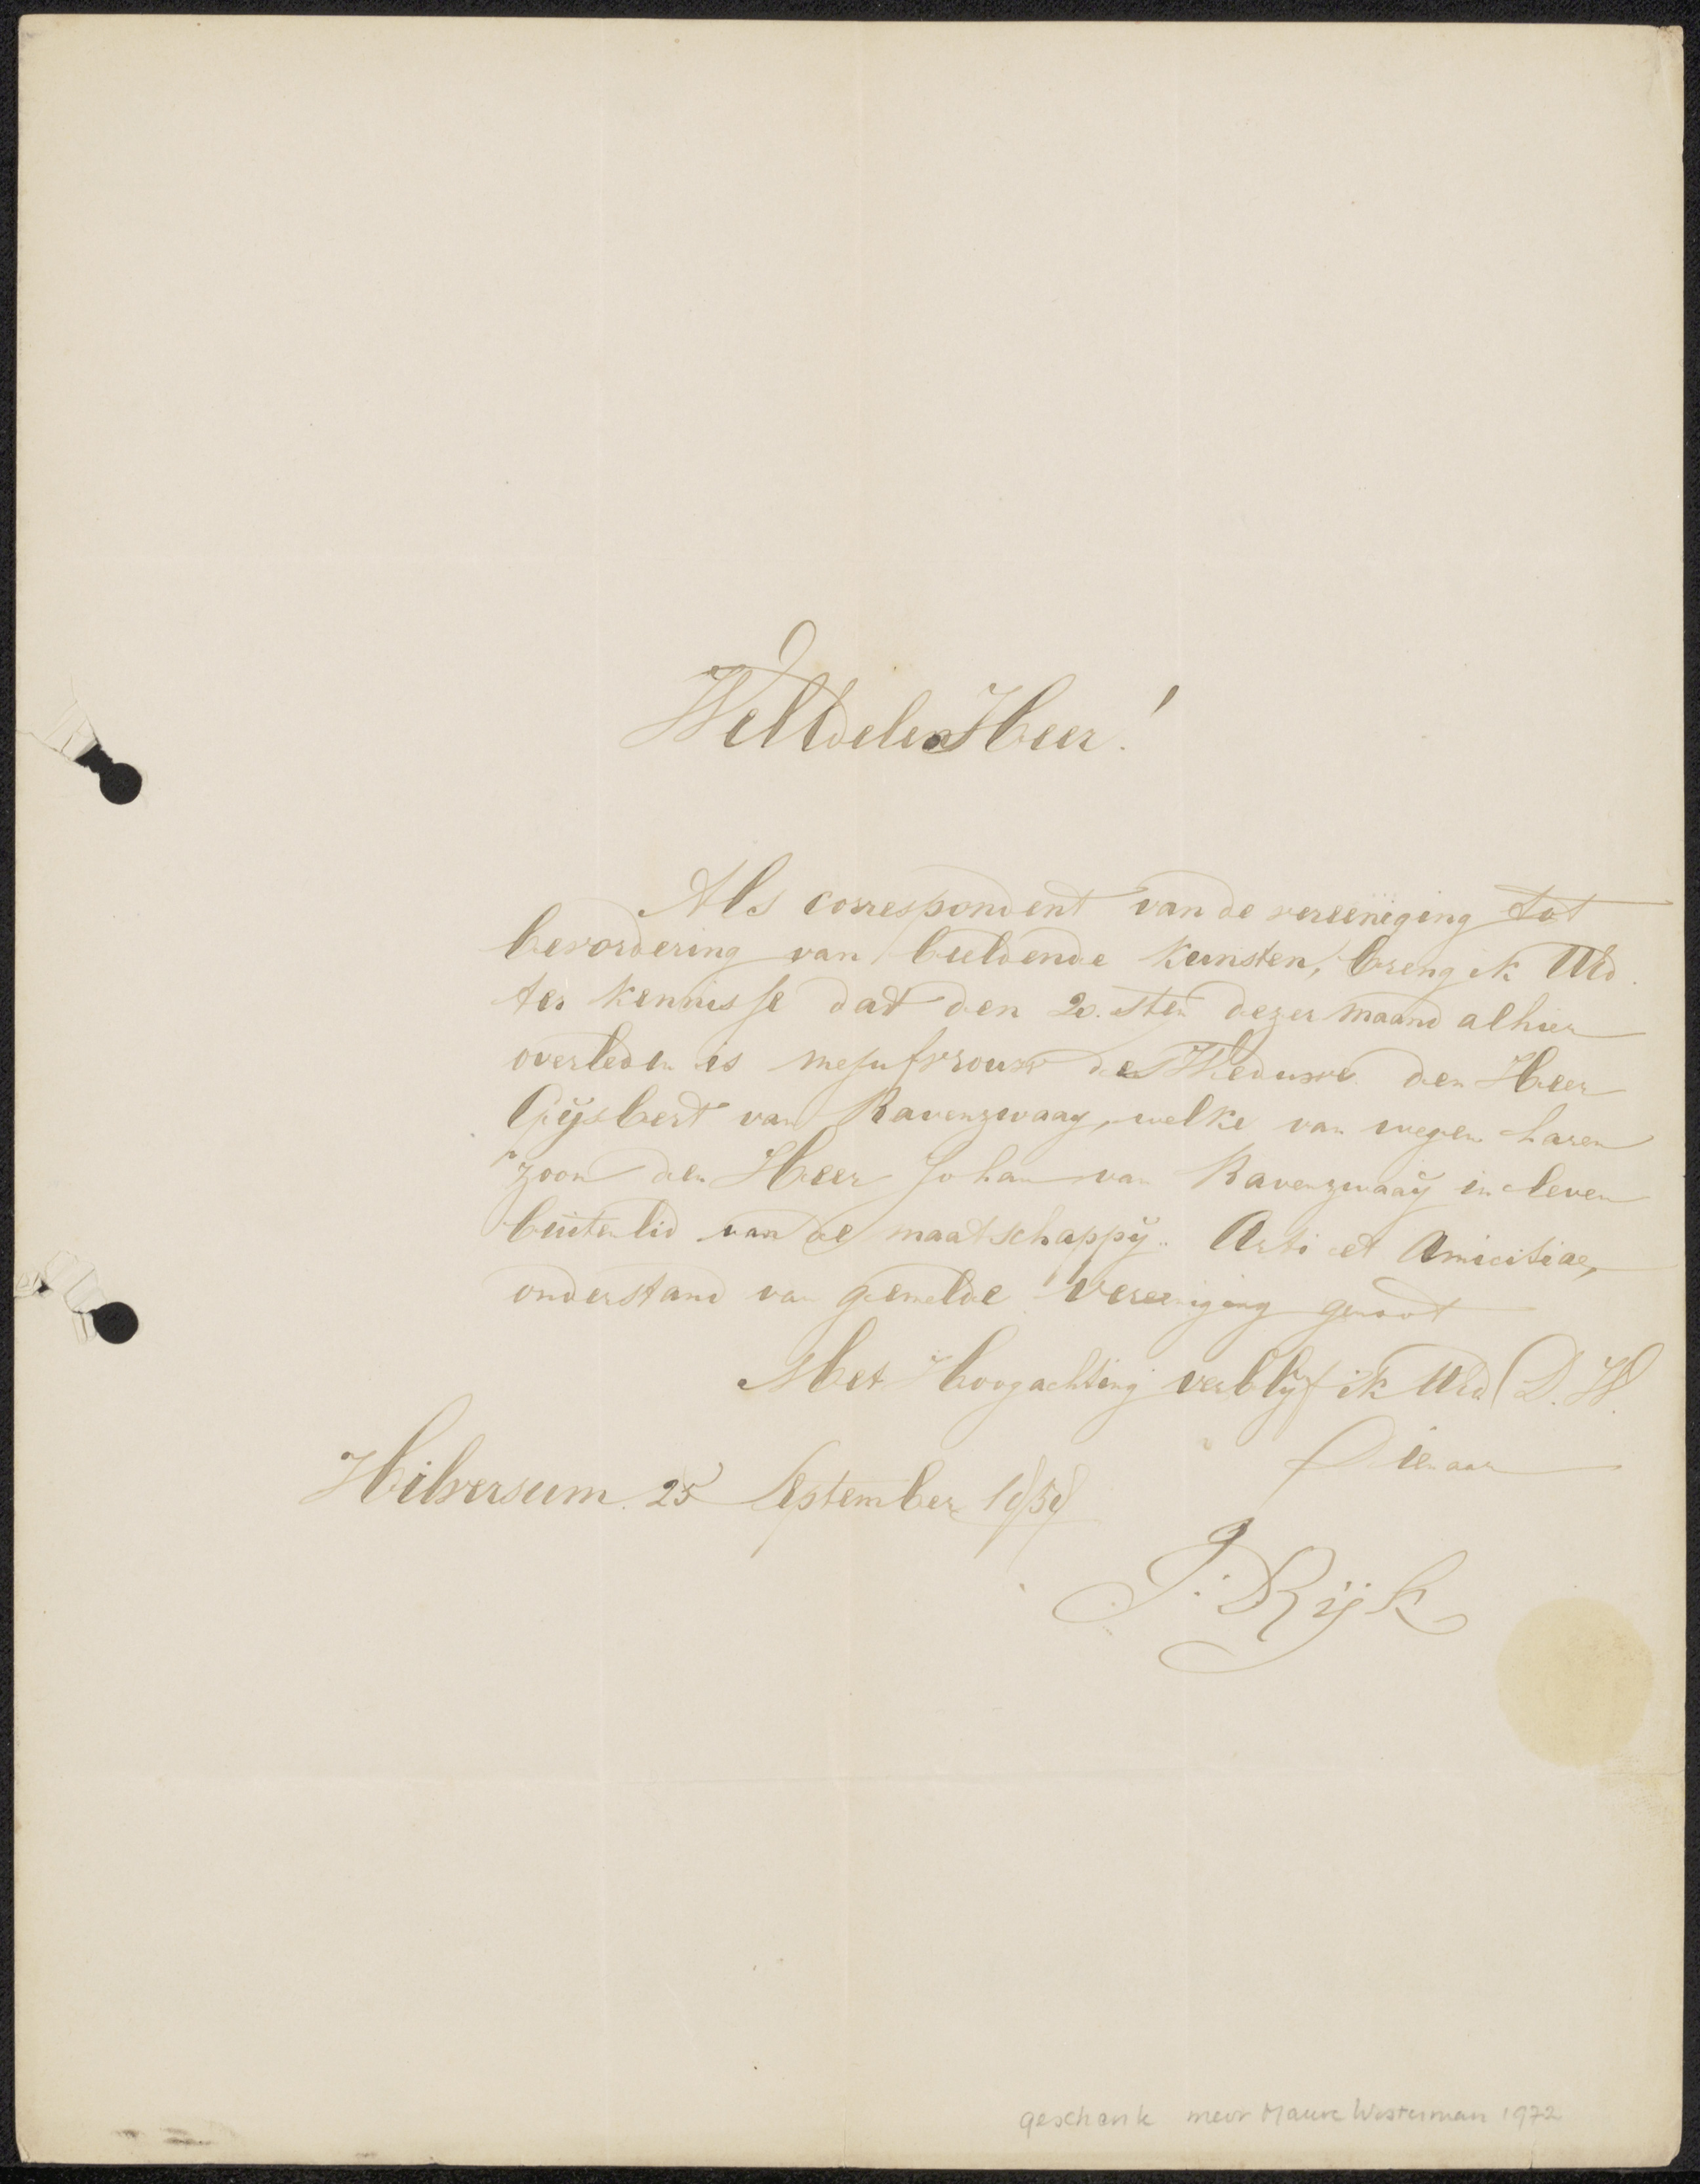 WelEdelen Heer!
Als correspondent van de vereeniging tot
bevordering van beeldende Kunsten, breng ik UEd.
ter kennisse dat den 20.sten dezer maand alhier
overleden is mejufvrouw de Weduwe den Heer
Gijsbert van Ravenzwaay, welke van wegen haren
zoon den Heer Johan van Ravenzwaaij in leven
buitenlid van de maatschappij. Arti et Amicitiae,
onderstand van gemelde Vereeniging genoot
Met Hoogachting verblijf ik UEd D. W.
Dienaar
Hilversum. 25 September 1858
J. Rijk
geschenk mevr Mauve Westerman 1972